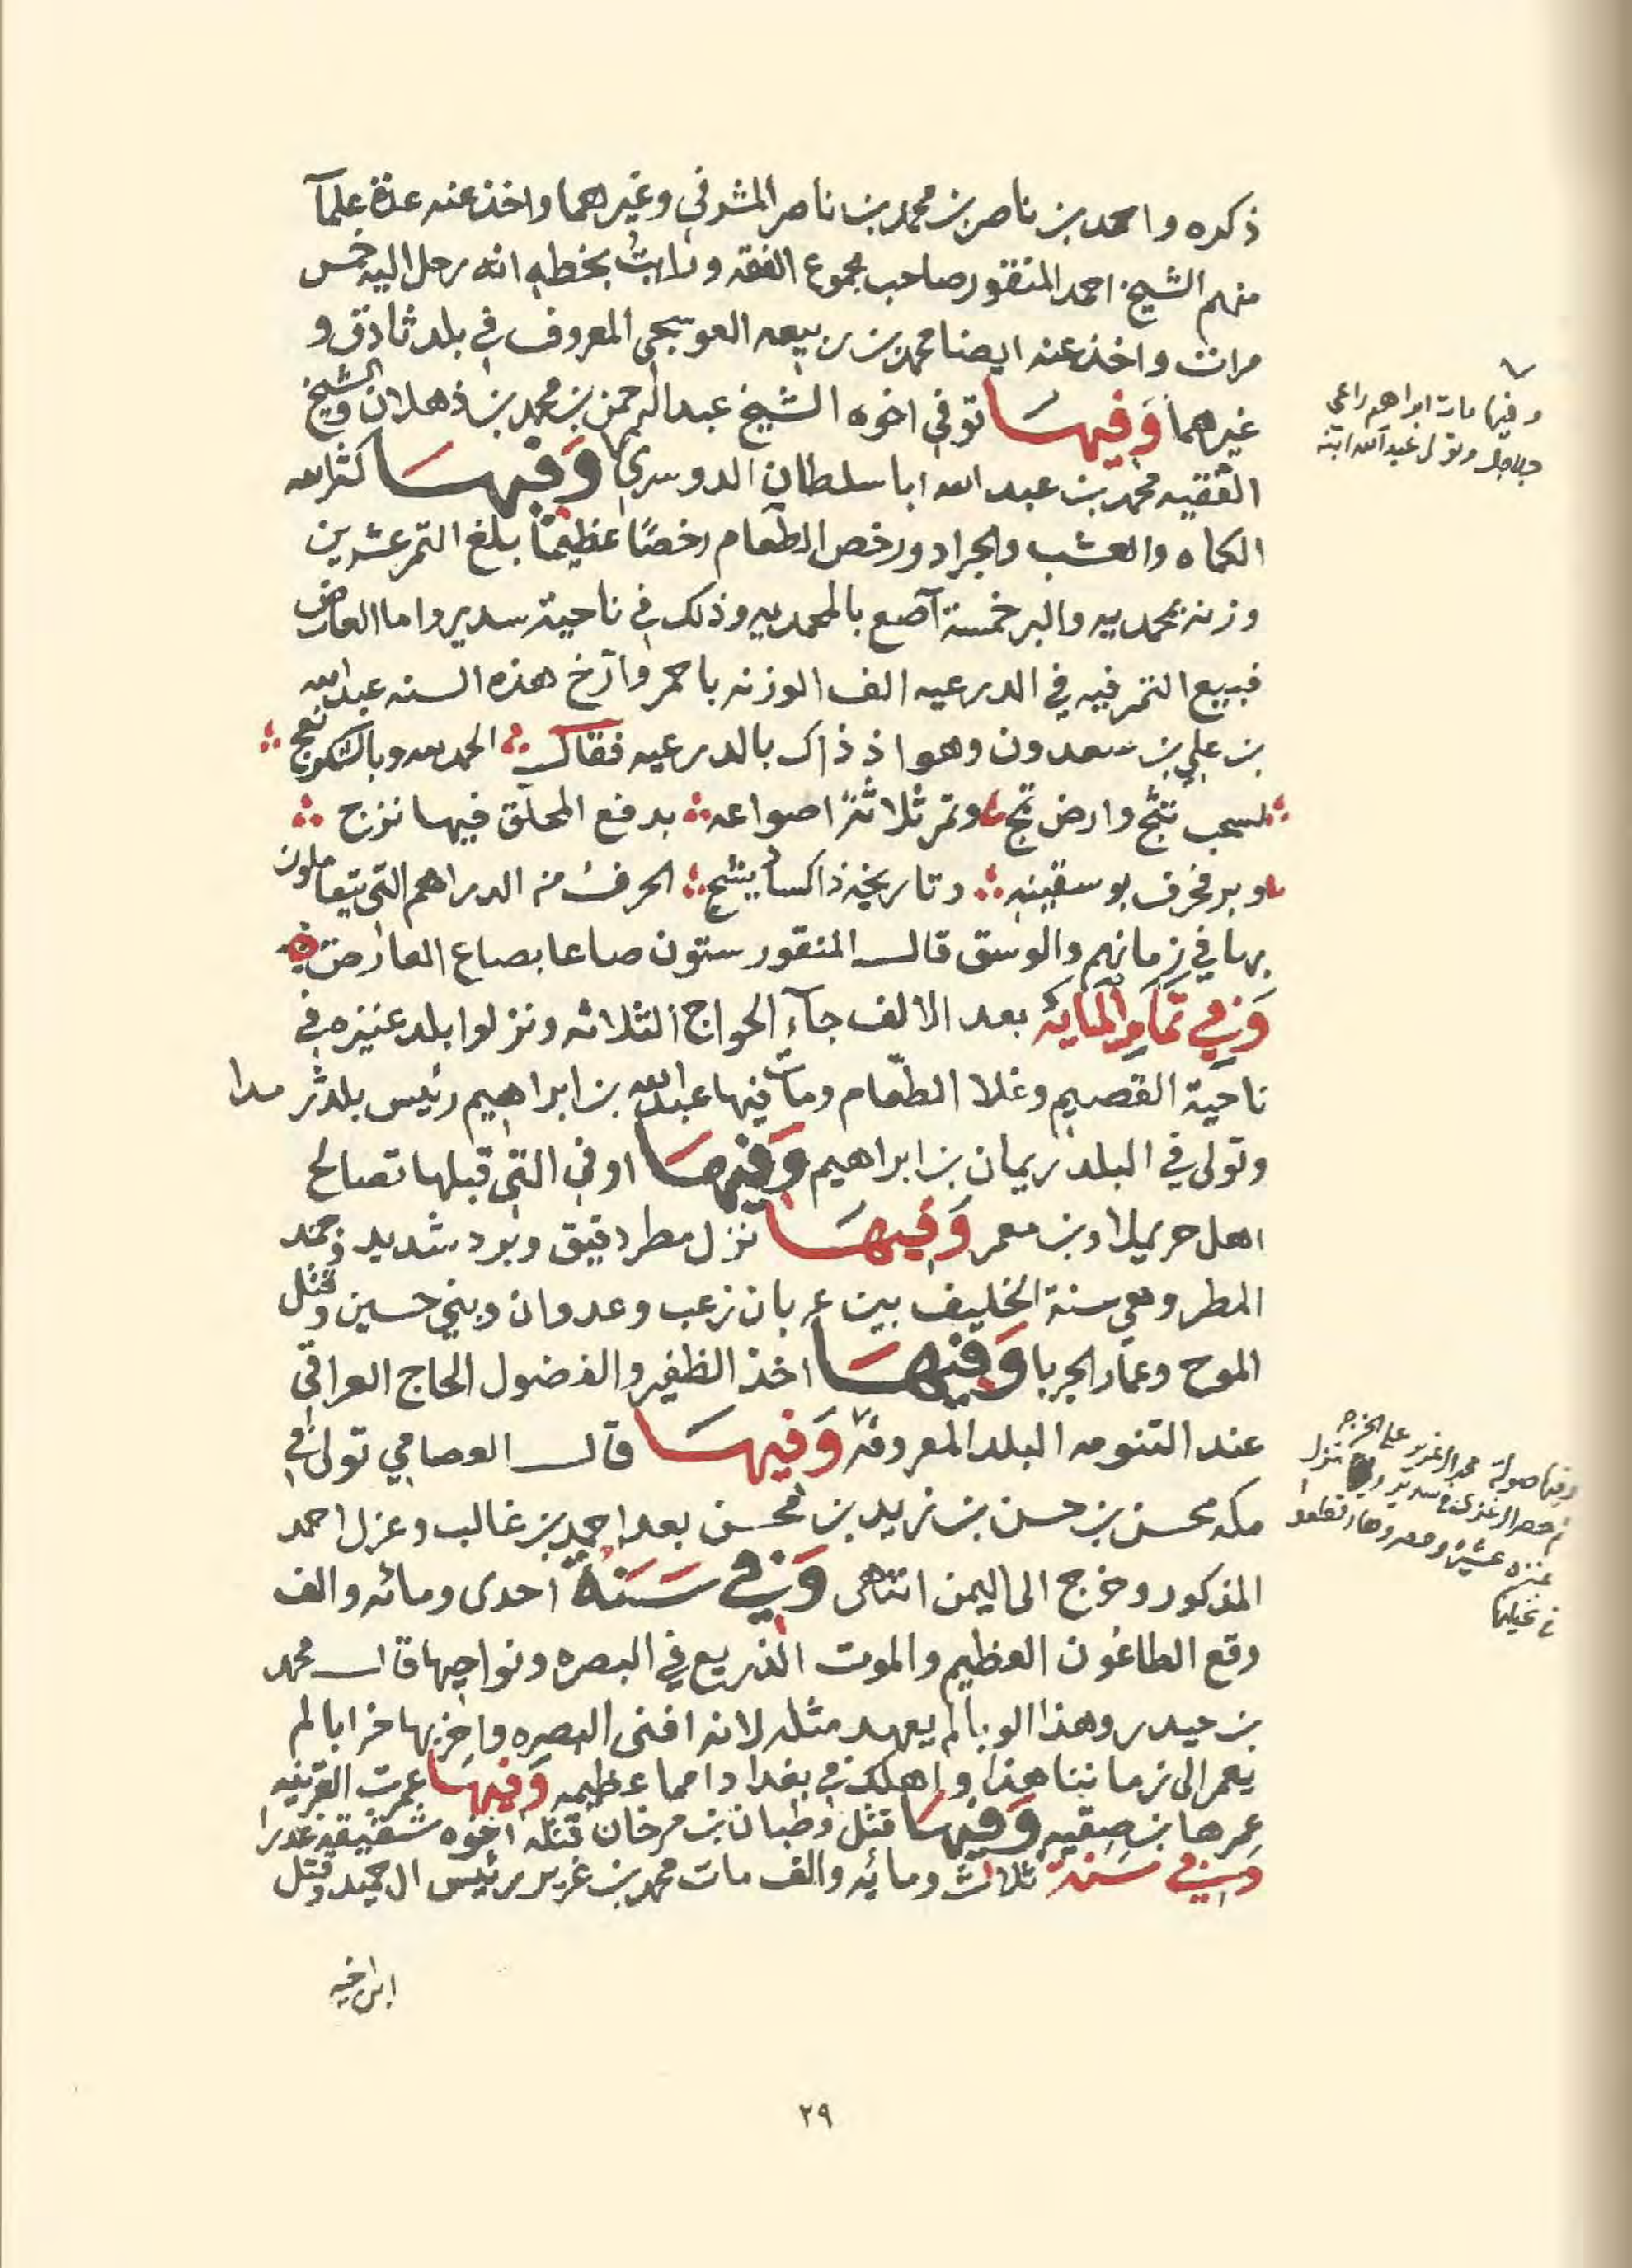 ذكره واحمد بن ناصر بن محمد بن ناصر المشرفي وغيرهما واخذ عنه عدة علمآ
منهم الشيخ احمد المنقور صاحب مجموع الفقه ورايت بخطه انه رحل اليه خمس
مرات واخذ عنه ايضا محمد بن ربيعه العوسجي المعروف في بلد ثادق و
غيرهما وَفيهَا توفي اخوه الشيخ عبد الرحمن بن محمد بن ذهلان والشيخ
الفقيه محمد بن عبد الله ابا سلطان الدوسري وَفيهَا كثر الله
الكماه والعشب والجراد ورخص الطعام رخصًا عظيمًا بلغ التمر عشرين
وزنه بمحمديه والبر خمسة آصع بالمحمديه وذلك في ناحية سدير واما العارض
فبيع التمر فيه في الدرعيه الف الوزنه باحمر وآرخ هذه السنه عبد الله
بن علي بن سعدون وهو اذ ذاك بالدرعيه فقال الحمد لله وبالشكر نعج
لسحب تثج وارض تمج وتمر ثلاثة اصواعه بدفع المحلق فيها نزج
وبر فحرف بوسقينه وتاريخه ذا كسا يشج الحرف من الدراهم التي يتعاملون
بها في زمانهم والوسق قال المنقور ستون صاعا بصاع العارض
وَفي تمام المايه بعد الالف جآء الحواج الثلاثه ونزلوا بلد عنيزه في
ناحية القصيم وغلا الطعام ومات فيها عبد الله بن ابراهيم رئيس بلد ثرمدا
وتولى في البلد ريمان بن ابراهيم وَفيهَا او في التي قبلها تصالح
اهل حريملا وبن معمر وَفيهَا نزل مطر دقيق وبرد شديد وجمد
المطر وهي سنة الخليف بين عربان زعب وعدوان وبني حسين وقتل
الموح وعمار الجربا وَفيهَا اخذ الظفير والفضول الحاج العراقي
عند التنومه البلد المعروفه وَفيهَا قال العصامي تولى في
مكه محسن بن حسن بن زيد بن محسن بعد احمد بن غالب وعزل احمد
المذكور وخرج الى اليمن انتهى وَفي سَنَة احدى ومائه والف
وقع الطاعون العظيم والموت الذريع في البصره ونواحيها قال محمد
بن حيدر وهذا الوبا لم يعهد مثله لانه افنى البصره واخربها خرابا لم
يعمر الى زماننا هذا واهلك في بغداد امما عظيمه وَفيهَا عمرت القرينه
عمرها بن صقيه وَفيهَا قتل وطبان بن مرخان قتله اخوه شقيقه غدرا
وفي سنة ثلاث ومائه والف مات محمد بن غرير رئيس ال حميد وقتل
ابن اخيه
وفيها مات ابراهيم راعي
جلاجل وتولى عبد الله ابنه
وفيها صولة
عنزه عشيره
في نخيلها
٢٩